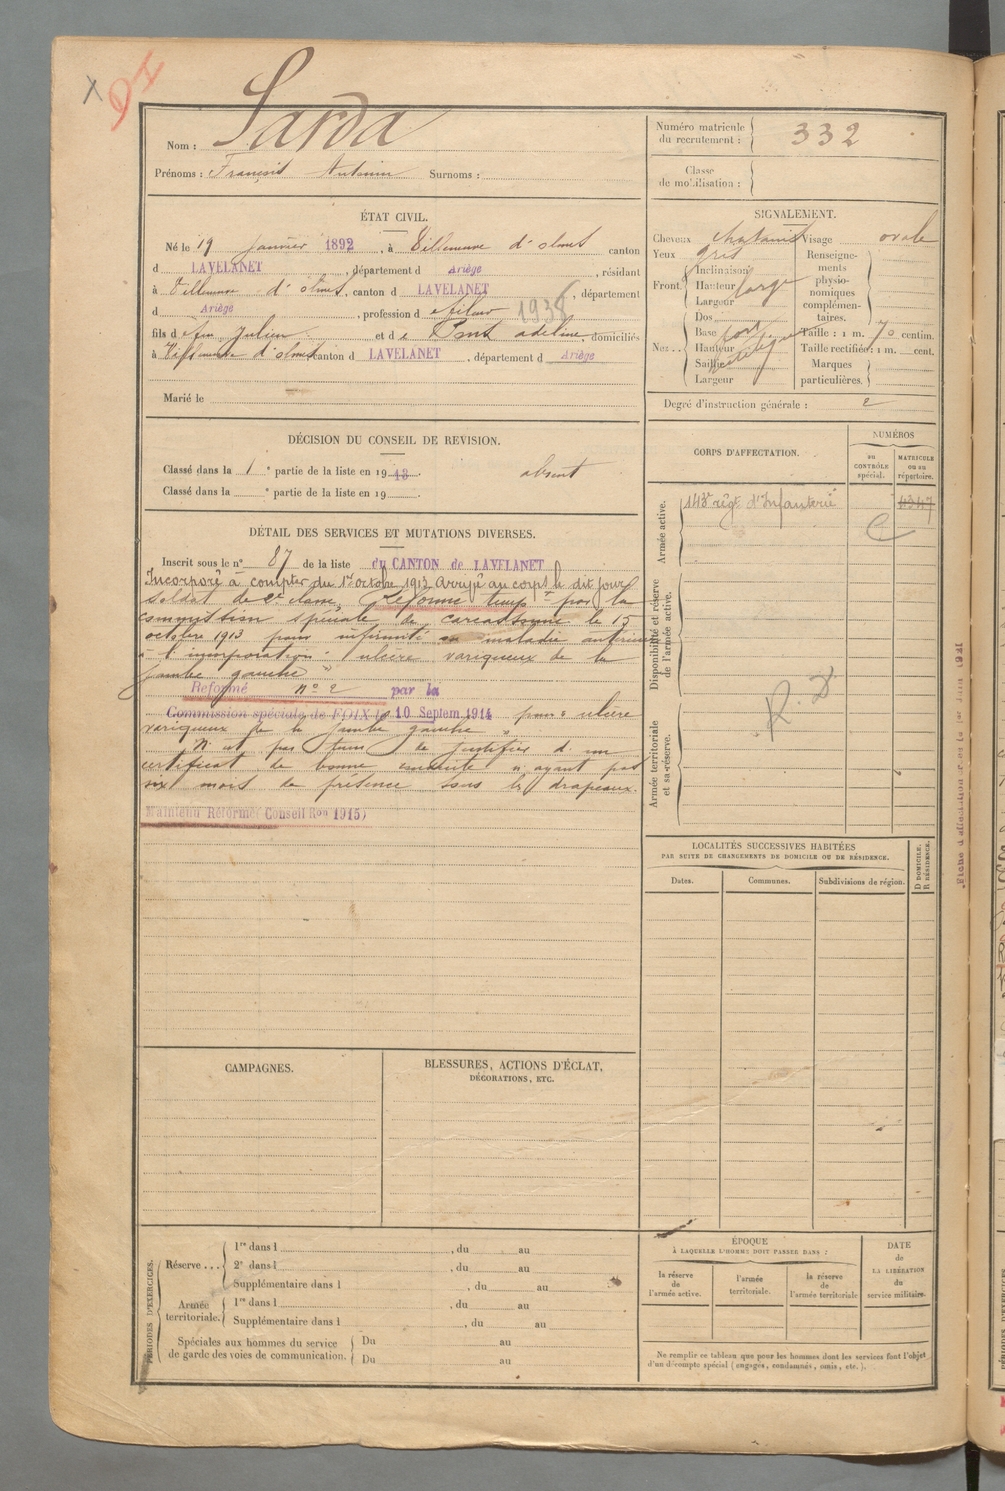 Nom : Sarda
Prénoms : François Antonin Surnoms :
Numéro matricule
du recrutement : 332
Classe
de mobilisation :
ÉTAT CIVIL.
Né le 19 janvier 1892, à Villeneuve d'olmes canton
d LAVELANET, département d Ariège, résidant
à Villeneuve d'olmes, canton d LAVELANET, département
d Ariège, profession d fileur 1936
fils d feu Julien et de Pont adeline, domiciliés
à Villeneuve d'olmes canton d LAVELANET, département d Ariège
Marié le
SIGNALEMENT.
Cheveux chatains Visage ovale
Yeux gris
Front. Inclinaison
Hauteur large
Largeur
Nez. . Dos
Base fort
Hauteur
Saillie
Largeur
Renseigne-
ments
physio-
nomiques
complémen-
taires.
Taille : 1 m. 70 centim.
Taille rectifiée : 1 m. cent.
Marques
particulières.
Degré d'instruction générale : 2
DÉCISION DU CONSEIL DE REVISION.
Classé dans la 1e partie de la liste en 1913. absent
Classé dans la e partie de la liste en 19
DÉTAIL DES SERVICES ET MUTATIONS DIVERSES.
Inscrit sous le n° 87 de la liste du CANTON de LAVELANET
Incorporé à compter du 1er octobre 1913. Arrivé au corps le dit jour
soldat de 2e classe. Réformé tempre par la
commission spéciale de carcassonne le 15
octobre 1913 pour infirmité ou maladie antérieure
à l'incorporation : "ulcère variqueux de la
jambe gauche"
Réformé n° 2 par la
Commission spéciale de FOIX le 10 Septem 1914 pour "ulcère
variqueux de la jambe gauche"
N'est pas tenu de justifier d'un
certificat de bonne conduite n'ayant pas
six mois de présence sous les drapeaux.
Maintenu Réformé (Conseil Ron 1915)
CORPS D'AFFECTATION.
NUMÉROS
au
CONTRÔLE
spécial.
MATRICULE
ou au
répertoire.
Armée active.
143e régt d'Infanterie
4347
Disponibilité et réserve
de l'armée active.
R. D
Armée territoriale
et sa réserve.
LOCALITÉS SUCCESSIVES HABITÉES
PAR SUITE DE CHANGEMENTS DE DOMICILE OU DE RÉSIDENCE.
Dates. Communes. Subdivisions de région.
D DOMICILE.
R RÉSIDENCE.
CAMPAGNES.
BLESSURES, ACTIONS D'ÉCLAT,
DÉCORATIONS, ETC.
PÉRIODES D'EXERCICES.
Réserve . . . 1re dans l , du au
2e dans l , du au
Supplémentaire dans l , du au
Armée
territoriale. 1re dans l , du au
Supplémentaire dans l , du au
Spéciales aux hommes du service
de garde des voies de communication. Du au
Du au
ÉPOQUE
À LAQUELLE L'HOMME DOIT PASSER DANS :
la réserve
de
l'armée active.
l'armée
territoriale.
la réserve
de
l'armée territoriale
DATE
de
LA LIBÉRATION
du
service militaire.
Ne remplir ce tableau que pour les hommes dont les services font l'objet
d'un décompte spécial (engagés, condamnés, omis, etc.).